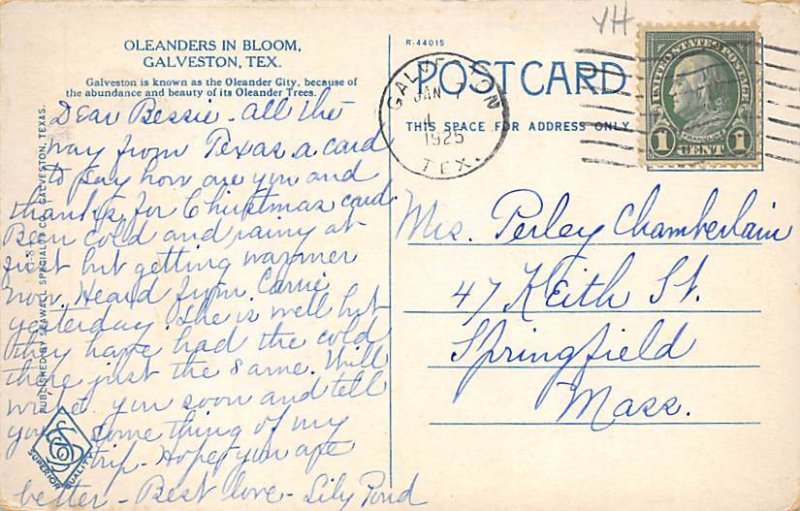 YH
OLEANDERS IN BLOOM,
GALVESTON, TEX.
Galveston is known as the Oleander City, because of
the abundance and beauty of its Oleander Trees.
Dear Bessie - All the
way from Texas a card
to say how are you and
thanks for Christmas card.
Been cold and rainy at
first but getting warmer
now. Heard from Carrie
yesterday. She is well but
they have had the cold
there just the same. Will
write you soon and tell
you some thing of my
trip - Hope you are
better - Best love - Lily Pond
PUBLISHED BY SEAWALL SPECIALTY CO., GALVESTON, TEXAS.
SUPERIOR QUALITY
R-44015
POST CARD
THIS SPACE FOR ADDRESS ONLY
GALVESTON
JAN
1925
TEX.
UNITED STATES POSTAGE
FRANKLIN
1 CENT 1
Mrs. Perley Chamberlain
47 Keith St.
Springfield
Mass.